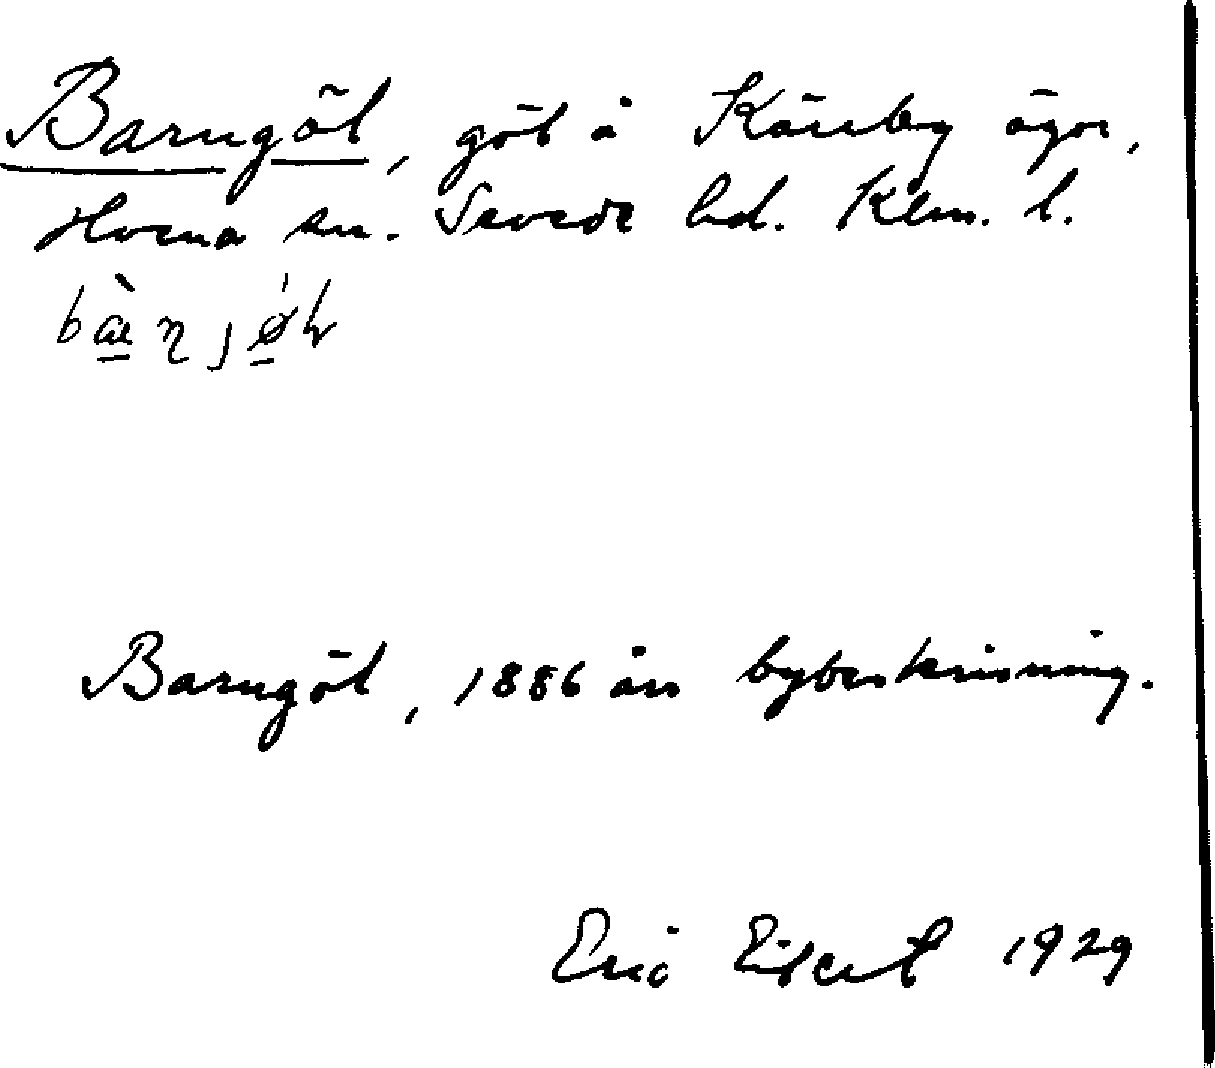 Barngöl, göl å Kärrby ägor,
Hvena sn. Sevede hd. Klm. l.
Barngöl, 1886 års bybeskrivning.
Eric Elgqvist 1929